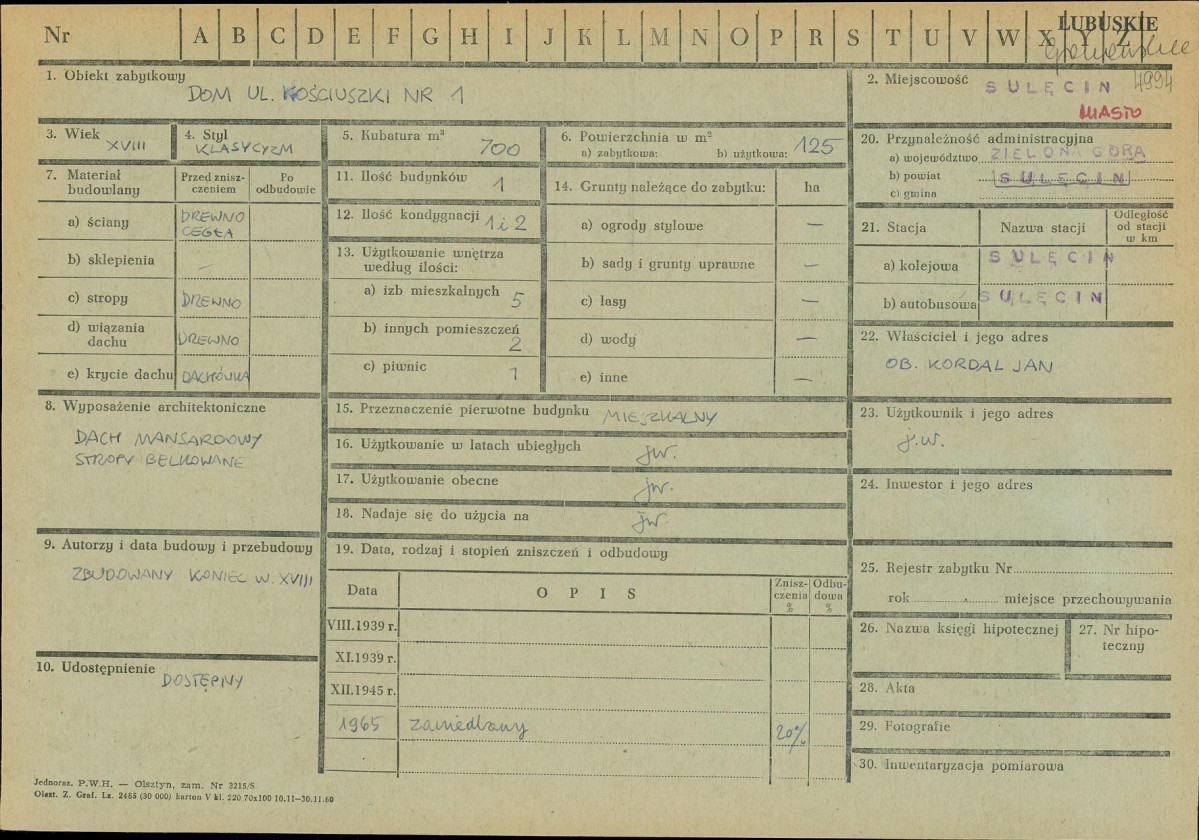 Nr A B C D E F G H I J K L M N O P R S T U V W X Y Z
LUBUSKIE
4994
1. Obiekt zabytkowy
DOM UL. KOŚCIUSZKI NR 1
2. Miejscowość SULĘCIN
MIASTO
3. Wiek
XVIII
4. Styl
KLASYCYZM
5. Kubatura m³
700
6. Powierzchnia w m²
a) zabytkowa: b) użytkowa: 125
20. Przynależność administracyjna
a) województwo ZIELONA GÓRA
b) powiat SULĘCIN
c) gmina
7. Materiał budowlany
Przed zniszczeniem
Po odbudowie
a) ściany DREWNO
CEGŁA
b) sklepienia —
c) stropy DREWNO
d) wiązania dachu DREWNO
e) krycie dachu DACHÓWKA
11. Ilość budynków 1
12. Ilość kondygnacji 1 i 2
13. Użytkowanie wnętrza według ilości:
a) izb mieszkalnych 5
b) innych pomieszczeń
2
c) piwnic 1
14. Grunty należące do zabytku: ha
a) ogrody stylowe —
b) sady i grunty uprawne —
c) lasy —
d) wody —
e) inne —
21. Stacja Nazwa stacji Odległość od stacji w km
a) kolejowa SULĘCIN
b) autobusowa SULĘCIN
22. Właściciel i jego adres
OB. KORDAL JAN
8. Wyposażenie architektoniczne
DACH MANSARDOWY
STROPY BELKOWANE
15. Przeznaczenie pierwotne budynku MIESZKALNY
16. Użytkowanie w latach ubiegłych jw.
17. Użytkowanie obecne jw.
18. Nadaje się do użycia na jw.
23. Użytkownik i jego adres
j.w.
24. Inwestor i jego adres
9. Autorzy i data budowy i przebudowy
ZBUDOWANY KONIEC W. XVIII
19. Data, rodzaj i stopień zniszczeń i odbudowy
Data OPIS Zniszczenia % Odbudowa %
VIII.1939 r.
XI.1939 r.
XII.1945 r.
1965 zaniedbany 20%
25. Rejestr zabytku Nr
rok miejsce przechowywania
26. Nazwa księgi hipotecznej
27. Nr hipoteczny
10. Udostępnienie
DOSTĘPNY
28. Akta
29. Fotografie
30. Inwentaryzacja pomiarowa
Jednoraz. P.W.H. — Olsztyn, zam. Nr 3215/S
Olszt. Z. Graf. Lz. 2485 (30 000) karton V kl. 220 70x100 10.11—30.11.60